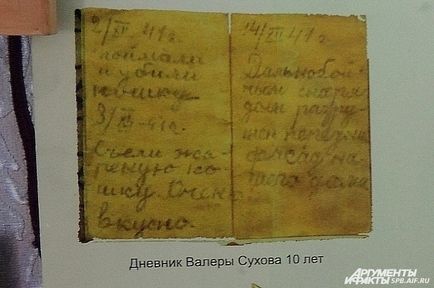 2/XII-41г.
поймали
и убили
кошку.
3/XII-41г.
Съели жа-
реную ко-
шку. Очень
вкусно.
14/XII 41 г.
Дальнобой-
ным снаря-
дом разру-
шен
фасад на-
шего дома
Дневник Валеры Сухова 10 лет
АРГУМЕНТЫ
И ФАКТЫ SPB.AIF.RU